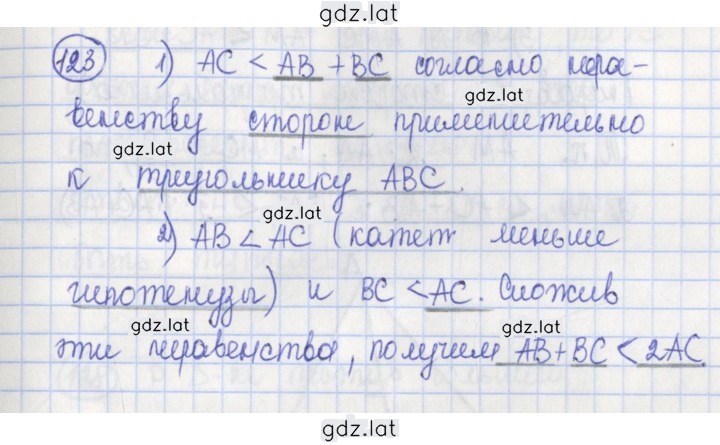 gdz.lat
123 1) AC < AB + BC согласно нера-
gdz.lat
венству сторон применительно
gdz.lat
к треугольнику ABC.
gdz.lat
2) AB < AC (катет меньше
гипотенузы) и BC < AC. Сложив
gdz.lat gdz.lat
эти неравенства, получим AB+BC < 2AC.
gdz.lat